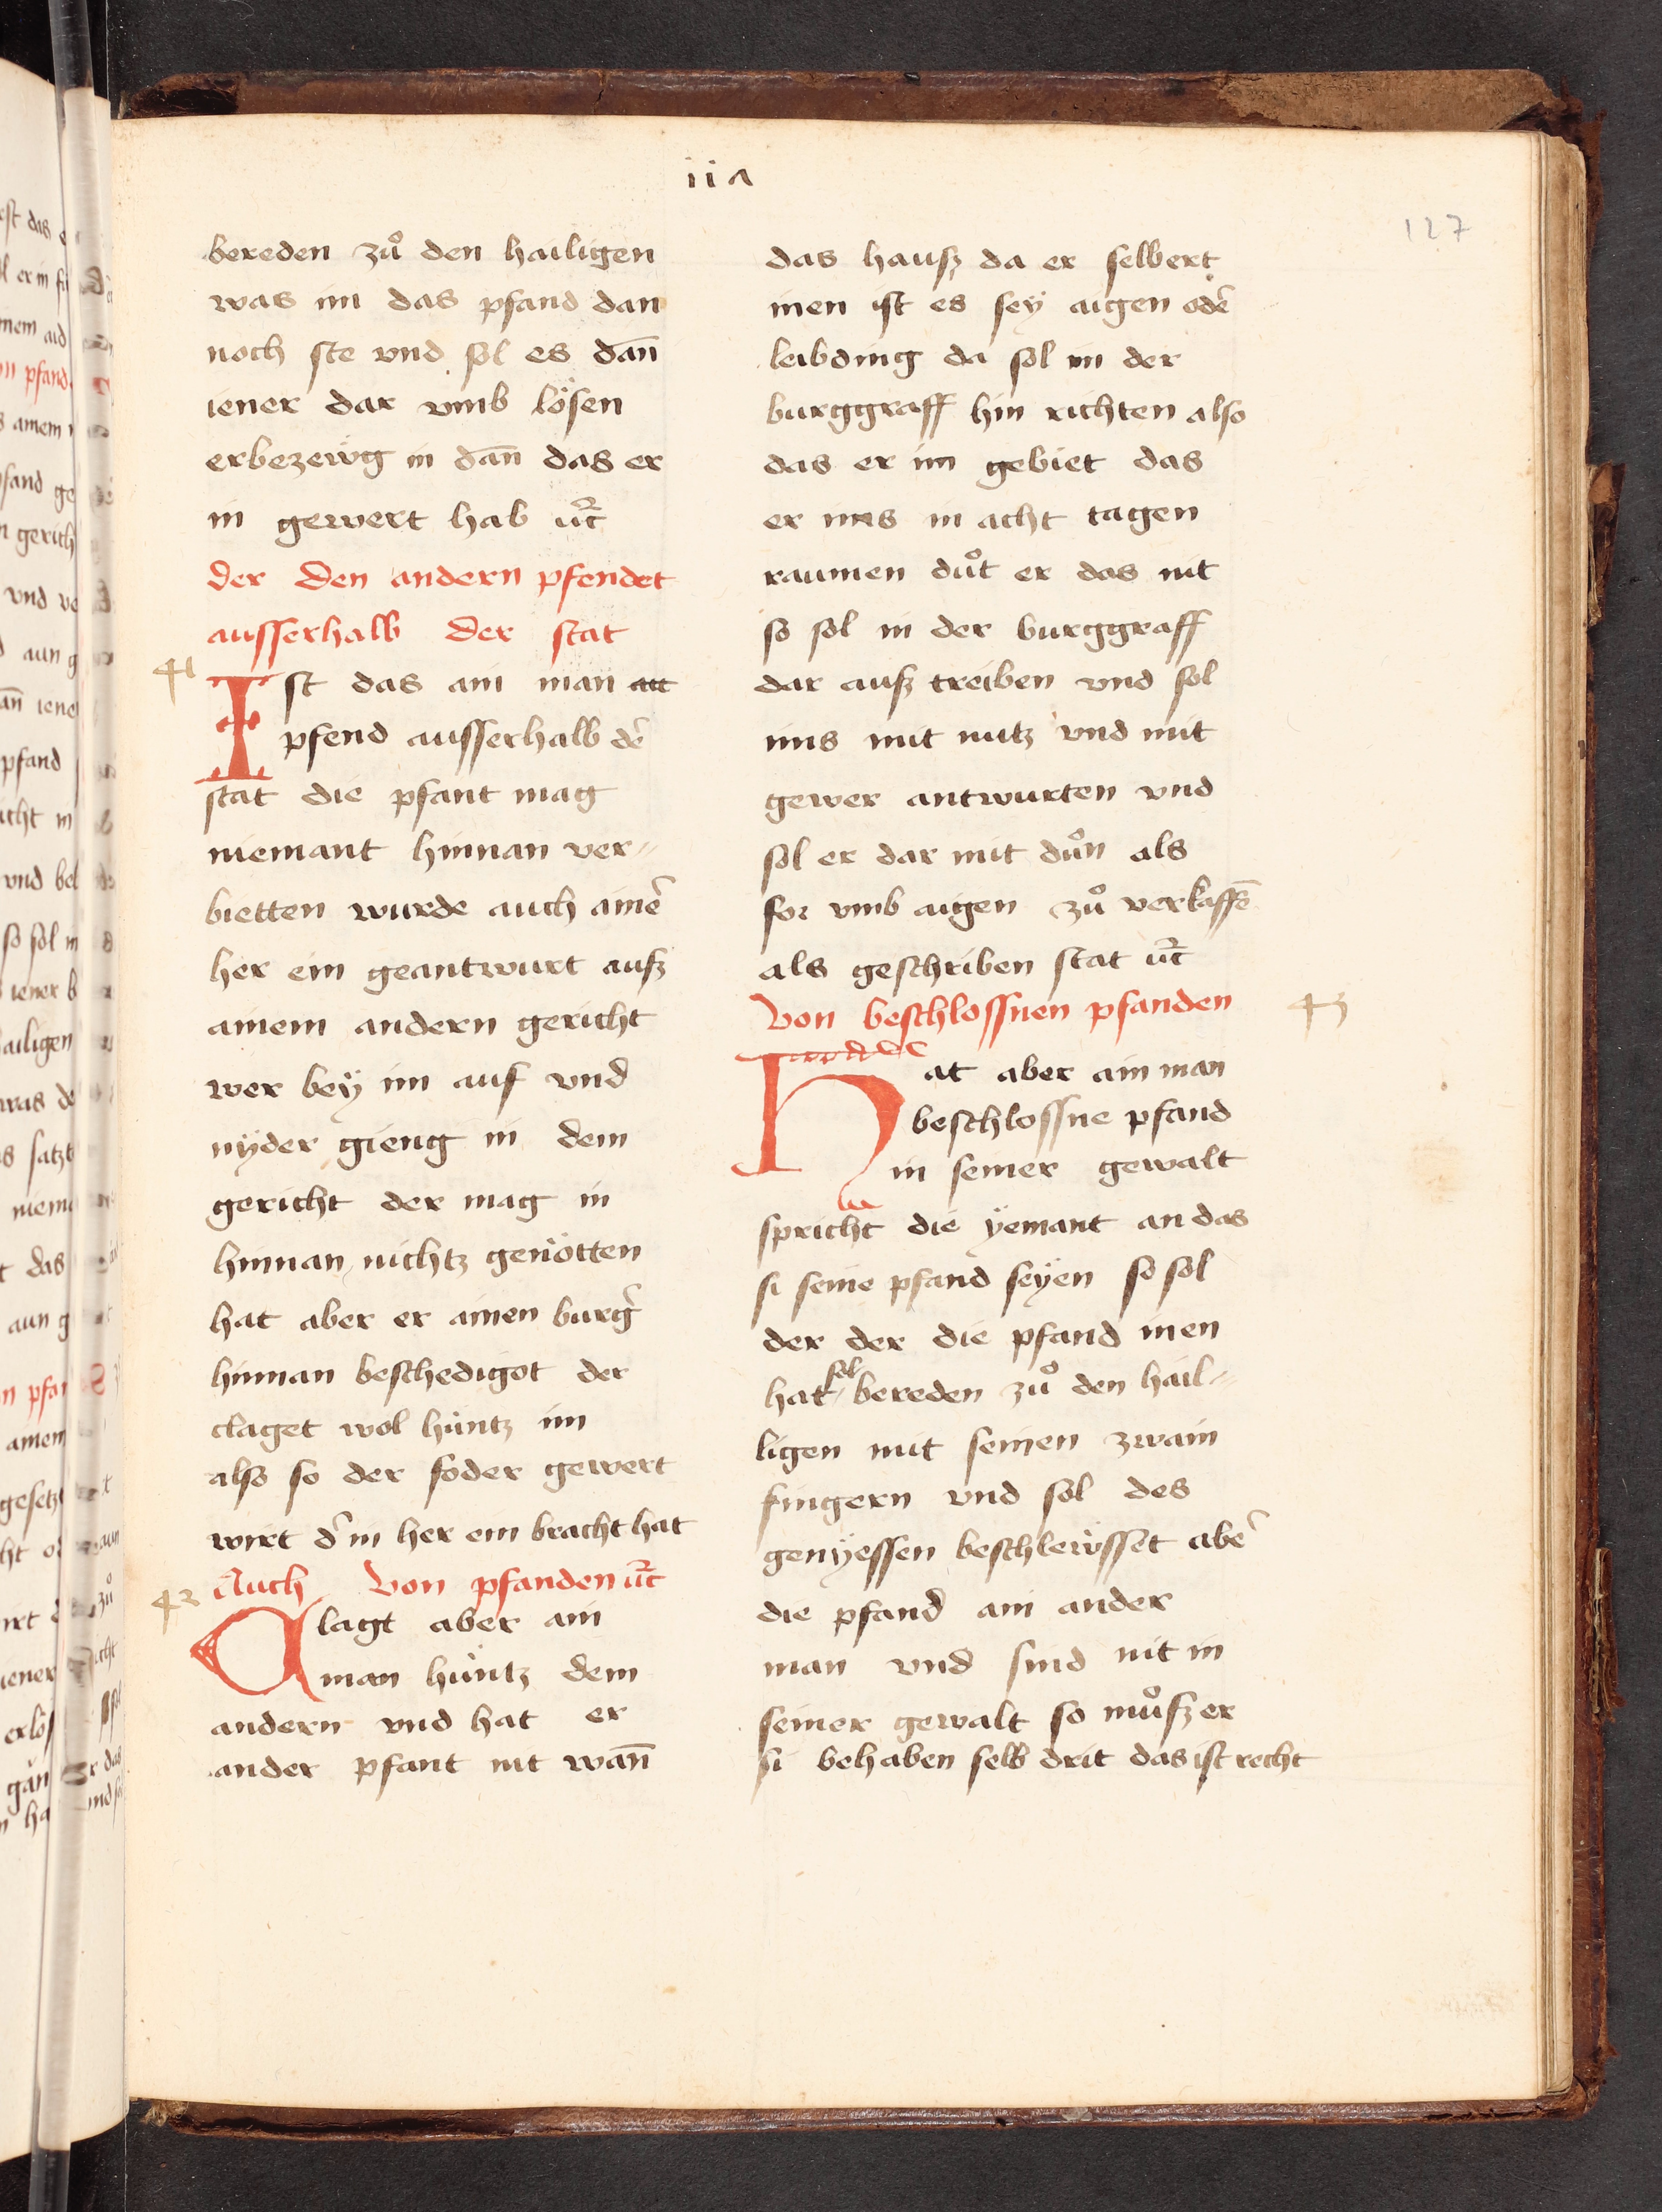 iia
127
bereden zuͦ den hailigen
was im das pfand dan
noch ste vnd sol es dan̄
iener dar vmb lösen
erbezewg in dan̄ das er
in gewert hab ꝛc̄
der den andern pfendet
ausserhalb der stat
41
Ist das ain man
pfend ausserhalb de᷑
stat die pfant mag
niemant hinnan ver⸗
bietten wurde auch aine᷑
her ein geantwurt ausz
ainem andern gericht
wer bey im auf vnd
nyder gieng in dem
gericht der mag in
hinnan nichtz genötten
hat aber er ainen burg᷑
hinnan beschedigot der
claget wol hüntz im
also so der foder gewert
wirt d᷑ in her ein bracht hat
42
Auch von pfanden ꝛc̄
Clagt aber ain
man hüntz dem
andern vnd hat er
ander pfant nit wan̄
das hausz da er selbert
inen ist es sey aigen ode᷑
leibding da sol im der
burggraff hin richten also
das er im gebiet das
er ims in acht tagen
raumen duͦt er das nit
so sol in der burggraff
dar ausz treiben vnd sol
ims mit nutz vnd mit
gewer antwurten vnd
sol er dar mit duͦn als
for vmb aigen zuͦ verkaffē
als geschriben stat ꝛc̄
von beschlossnen pfanden
43
Hat aber ain man
beschlossne pfand
in seiner gewalt
spricht die yemant an das
si seine pfand seyen so sol
der der die pfand inen
hat sol bereden zuͦ den hail⸗
ligen mit seinen zwain
fingern vnd sol des
genyessen beschlewsset abe᷑
die pfand ain ander
man vnd sind nit in
seiner gewalt so muͦsz er
si behaben selb drit das ist recht